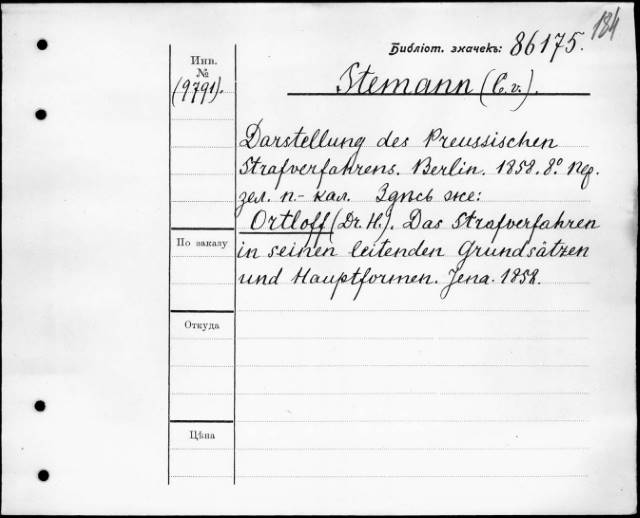 184
Библіот. значекъ: 86175.
Инв.
№
(9791).
Stemann (C. v.).
Darstellung des Preussischen
Strafverfahrens. Berlin. 1858. 8º. Пер.
зел. п.- кал. Здѣсь же:
Ortloff (Dr. H.). Das Strafverfahren
По заказу
in seinen leitenden Grundsätzen
und Hauptformen. Jena. 1858.
Откуда
Цѣна